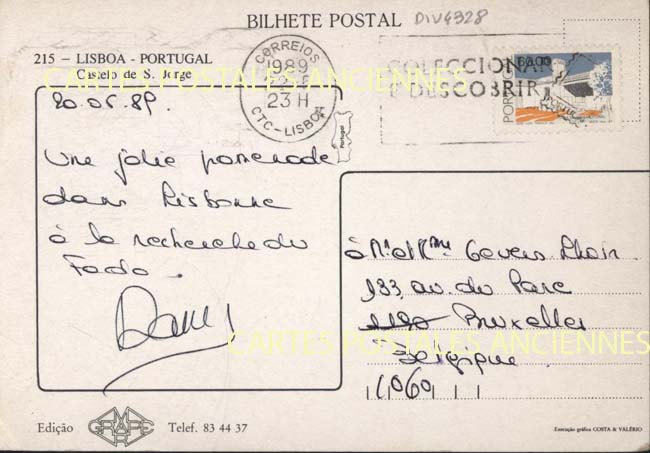 BILHETE POSTAL
DIV4328
215 - LISBOA - PORTUGAL
Castelo de S. Jorge
CARTES POSTALES ANCIENNES
CORREIOS
1989
23 H
CTC-LISBOA
COLECCIONAR
É DESCOBRIR
60.00
PORTUGAL
Portugal
20.05.89.
Une jolie promenade
dans Lisbonne
à la recherche du
Fado.
à Mr et Mme Govers
133, av. du Parc
1190 Bruxelles
Belgique
1060
CARTES POSTALES ANCIENNES
Edição
GRAFIPE
Telef. 83 44 37
Execução gráfica COSTA & VALÉRIO